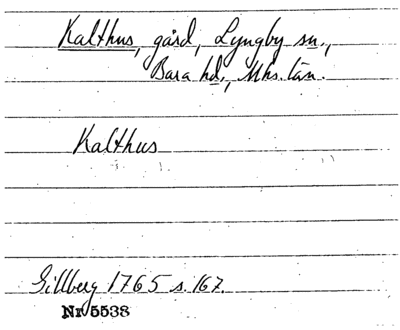 Kalthus, gård, Lyngby sn.,
Bara hd., Mhs. län.
Kalthus
Gillberg 1765 s. 167.
Nr 5538